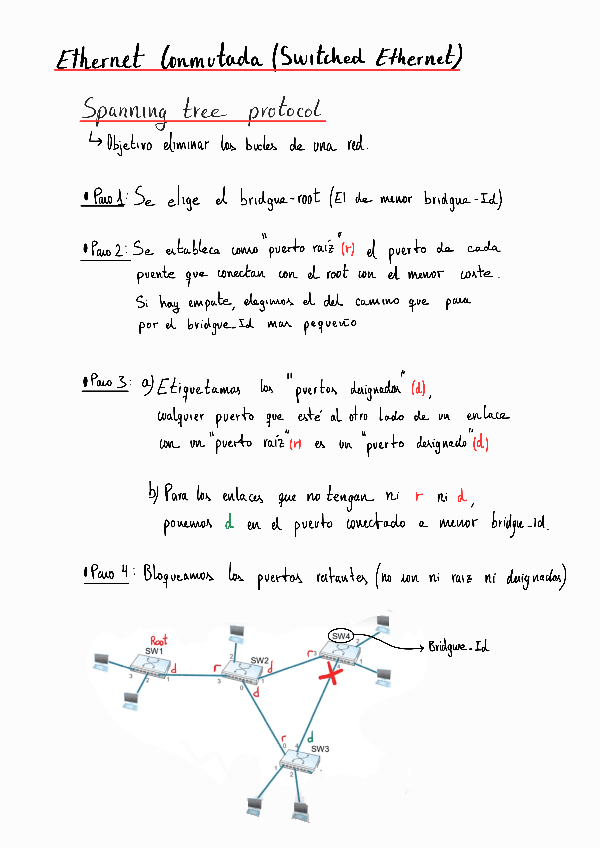 Ethernet Conmutada (Switched Ethernet)
Spanning tree protocol
↳ Objetivo eliminar los bucles de una red.
• Paso 1: Se elige el bridgue-root (El de menor bridgue-Id)
• Paso 2: Se establece como "puerto raiz" (r) el puerto de cada
puente que conectan con el root con el menor coste.
Si hay empate, elegimos el del camino que pasa
por el bridgue-Id mas pequeño
• Paso 3: a) Etiquetamos los "puertos designados" (d),
cualquier puerto que esté al otro lado de un enlace
con un "puerto raiz" (r) es un "puerto designado" (d)
b) Para los enlaces que no tengan ni r ni d,
ponemos d en el puerto conectado a menor bridge-id.
• Paso 4: Bloqueamos los puertos restantes (no son ni raiz ni designados)
Root
SW1
d
3 2 1
r
2
SW2
d
3 0 1
d
r
3
SW4
2
1
→ Bridgue-Id
r
0
d
4
SW3
1
2